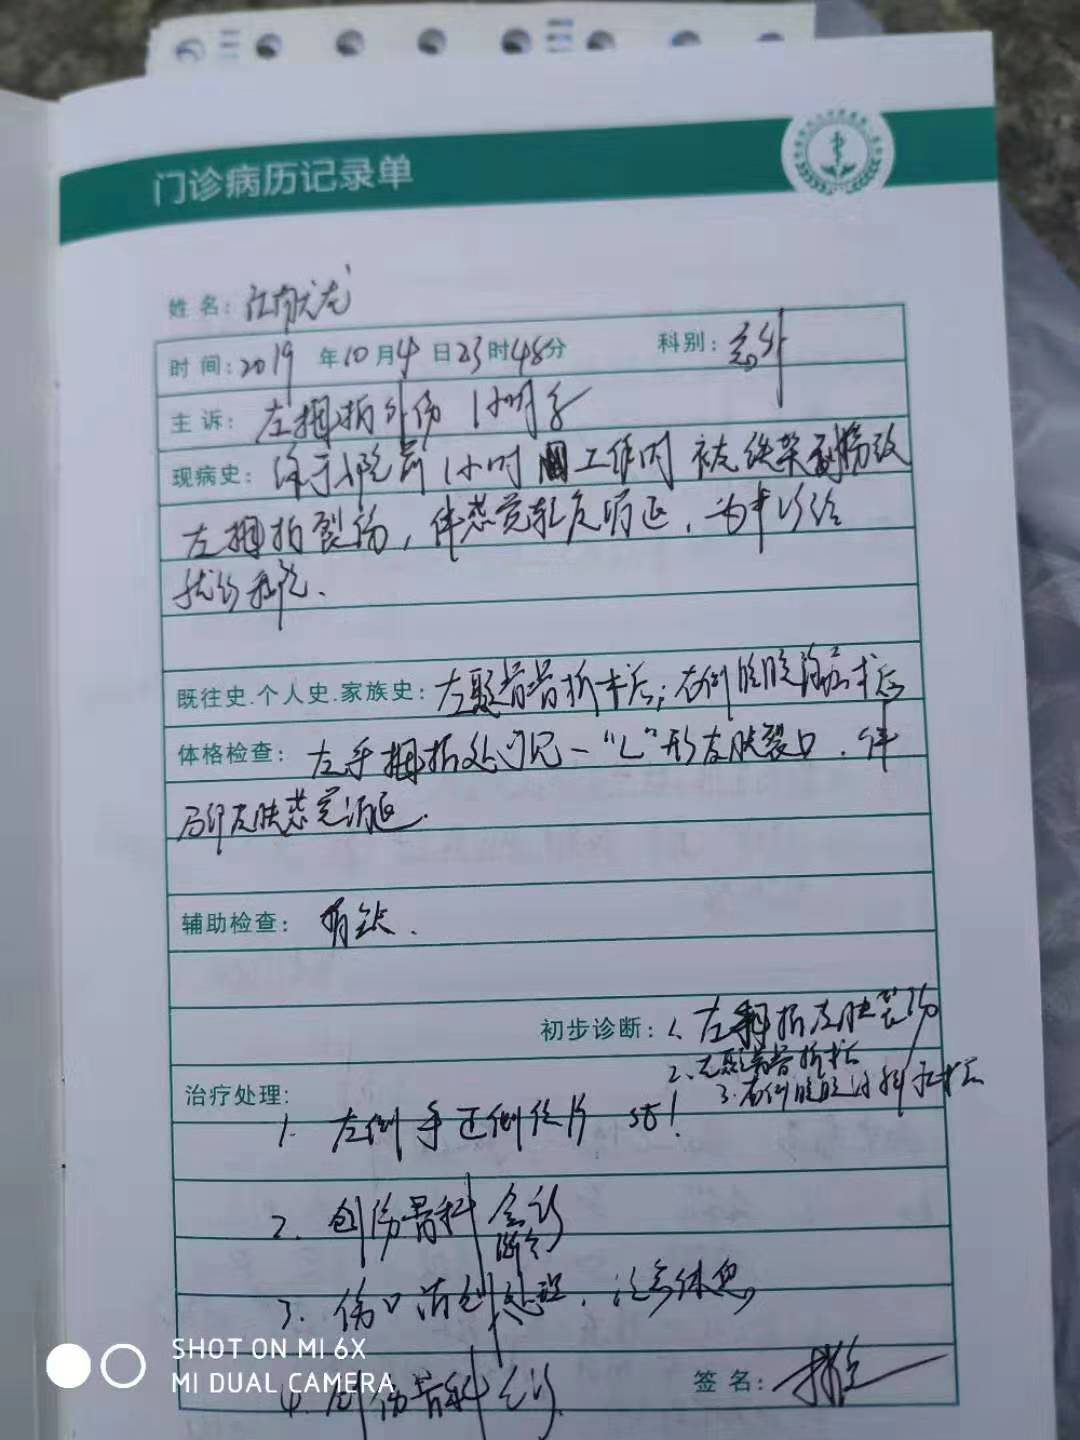 门诊病历记录单
姓名:
时间:2019年10月4日23时48分 科别:急外
主诉: 左拇指外伤1小时余
现病史: 患者入院前1小时工作时被铁架刮伤致
左拇指裂伤,伴感觉轻度消退,为求诊治
就诊我院.
既往史.个人史.家族史: 左髌骨骨折术后;右侧腹股沟疝术后
体格检查: 左手拇指处可见一"L"形皮肤裂口,伴
局部皮肤感觉消退.
辅助检查: 暂缺.
初步诊断: 1. 左拇指皮肤裂伤
2. 左髌骨骨折术后
3. 右侧腹股沟斜疝术后
治疗处理:
1. 左侧手正侧位片 st!
2. 创伤骨科会诊
3. 伤口清创处理,注意休息
4. 创伤骨科
签名:
SHOT ON MI 6X
MI DUAL CAMERA